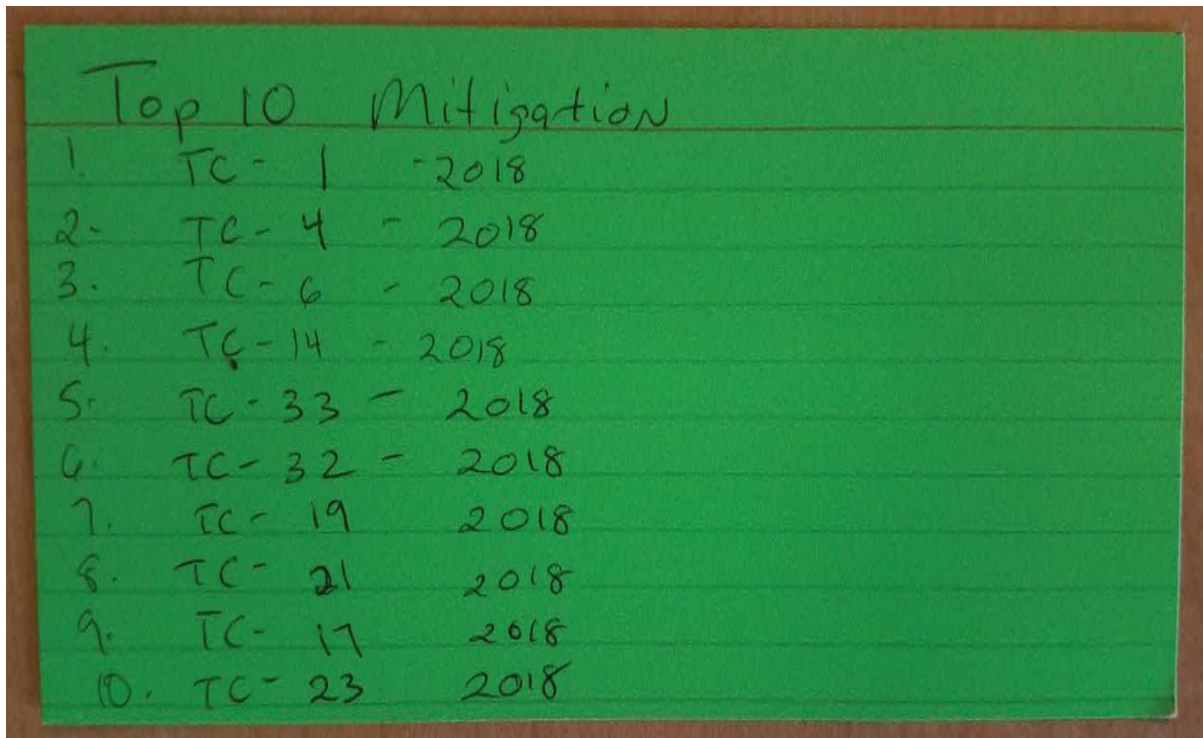 Top 10 Mitigation
1. TC- 1 -2018
2- TC- 4 - 2018
3. TC- 6 - 2018
4. TC-14 - 2018
5. TC-33 - 2018
6. TC-32 - 2018
7. TC- 19 2018
8. TC- 21 2018
9. TC- 17 2018
10. TC- 23 2018